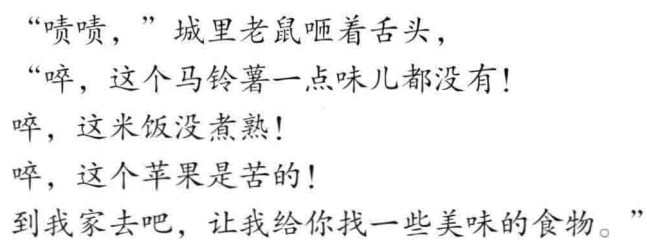 “啧啧，”城里老鼠咂着舌头，
“啐，这个马铃薯一点味儿都没有！
啐，这米饭没煮熟！
啐，这个苹果是苦的！
到我家去吧，让我给你找一些美味的食物。”